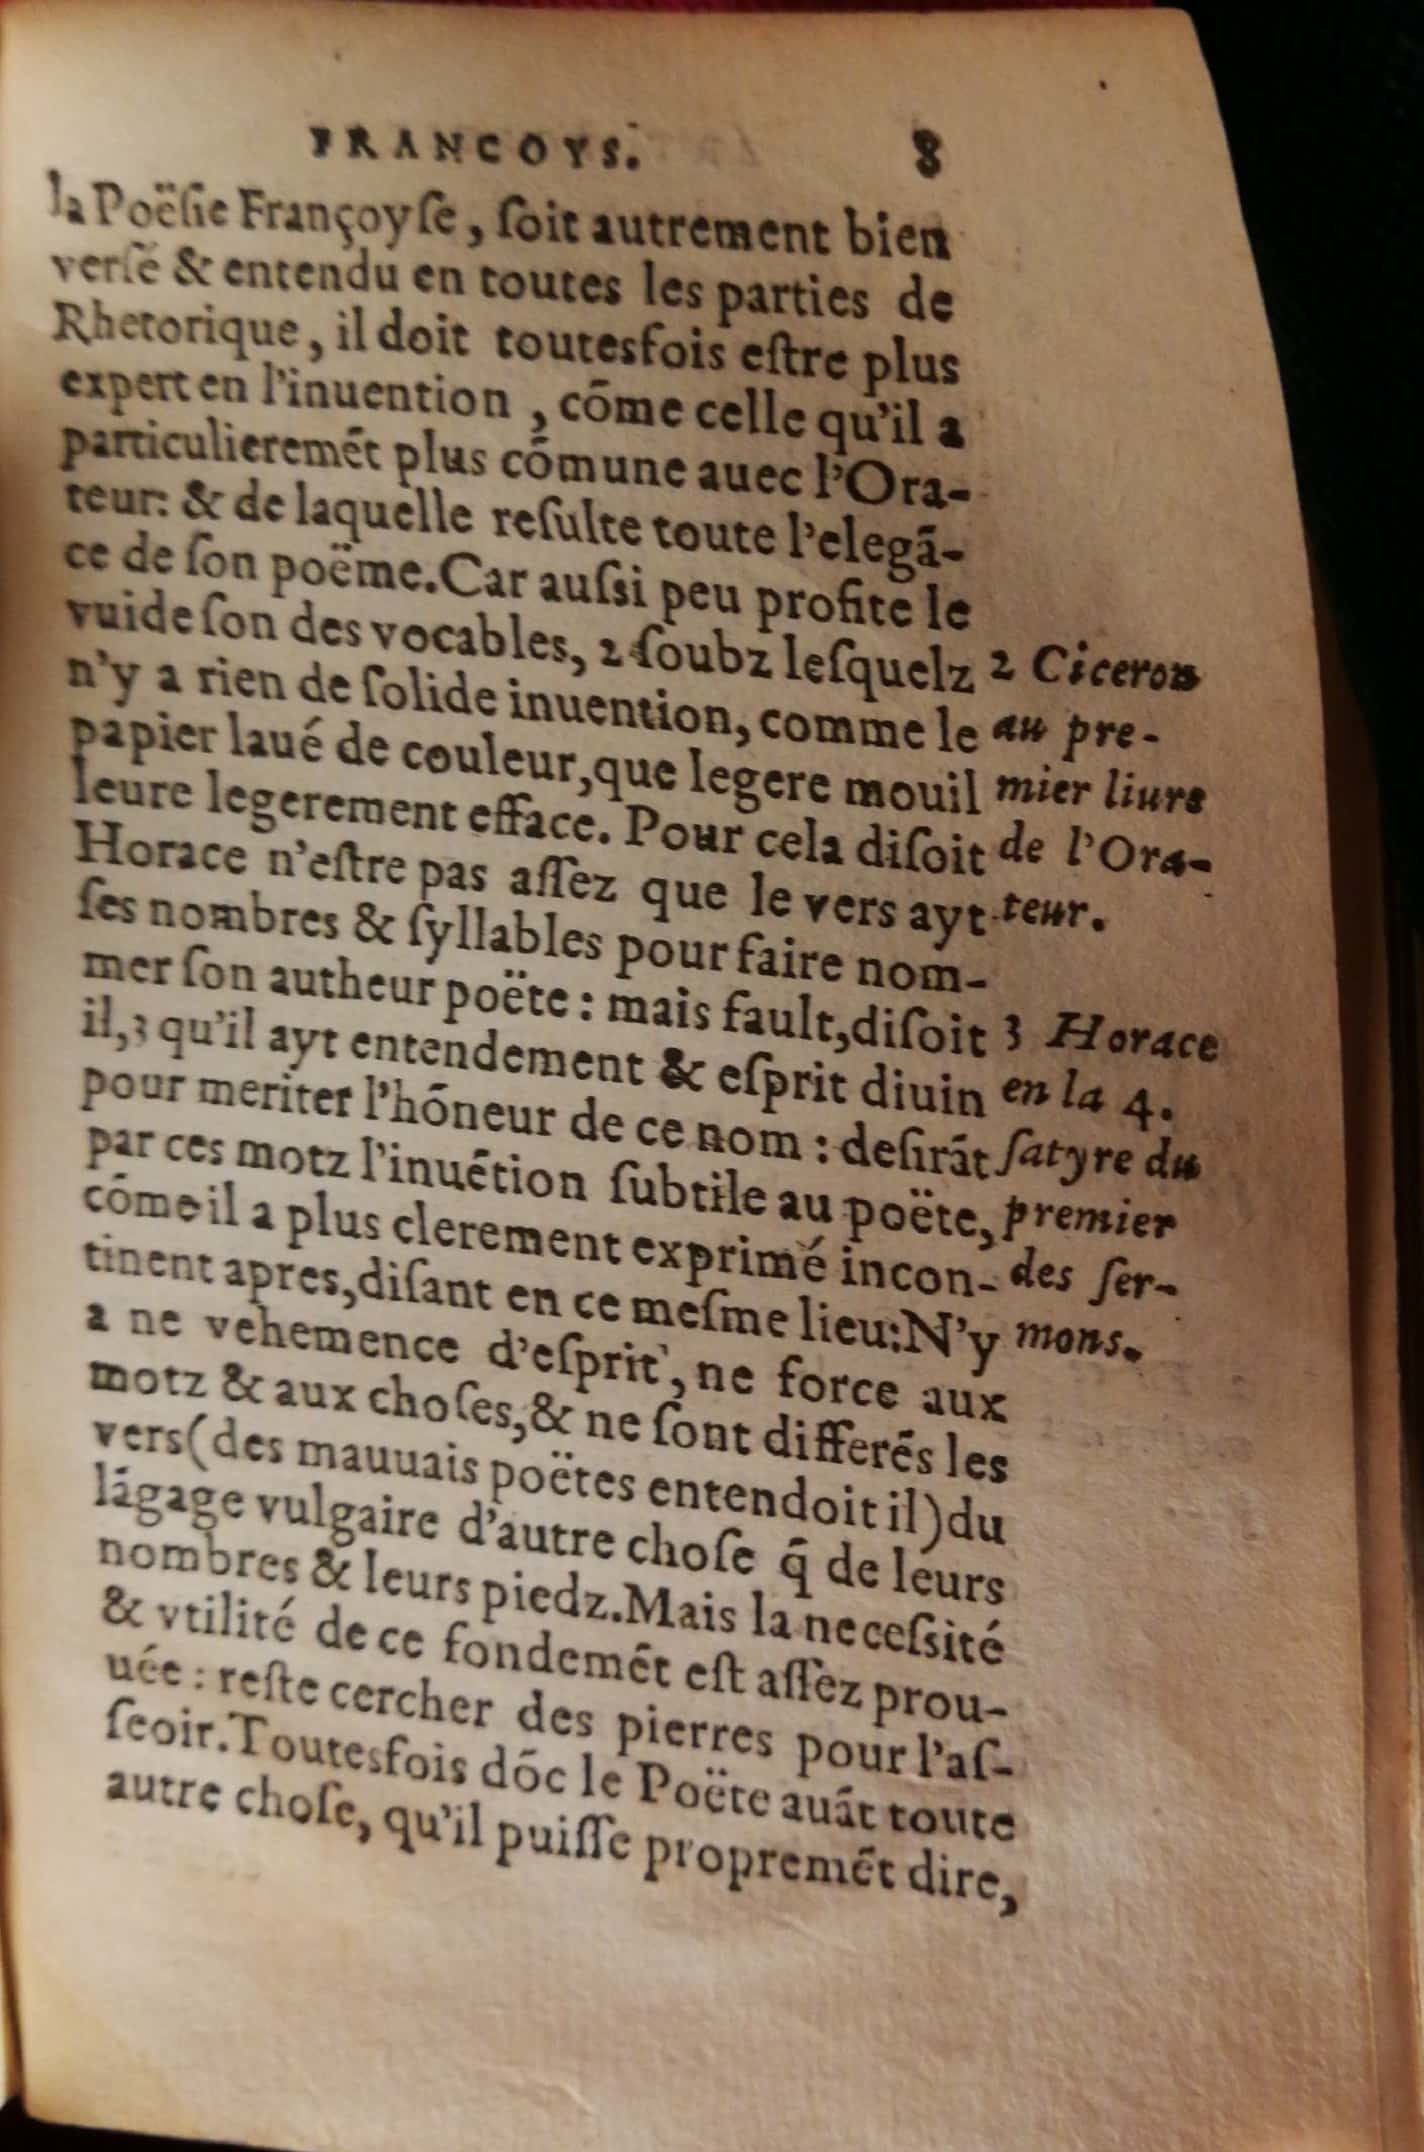 FRANCOYS. 8
la Poësie Françoyſe, ſoit autrement bien
verſé & entendu en toutes les parties de
Rhetorique, il doit toutesfois eſtre plus
expert en l'inuention, cōme celle qu'il a
particulieremēt plus cōmune auec l'Ora-
teur: & de laquelle reſulte toute l'elegā-
ce de ſon poëme. Car auſsi peu profite le
vuide ſon des vocables, 2 ſoubz leſquelz
n'y a rien de ſolide inuention, comme le
papier laué de couleur, que legere mouil
leure legerement efface. Pour cela diſoit
Horace n'eſtre pas aſſez que le vers ayt
ſes nombres & ſyllables pour faire nom-
mer ſon autheur poëte: mais fault, diſoit
il, 3 qu'il ayt entendement & eſprit diuin
pour meriter l'hōneur de ce nom: deſirāt
par ces motz l'inuētion ſubtile au poëte,
cōme il a plus clerement exprimé incon-
tinent apres, diſant en ce meſme lieu: N'y
a ne vehemence d'eſprit, ne force aux
motz & aux choſes, & ne ſont differēs les
vers (des mauuais poëtes entendoit il) du
lāgage vulgaire d'autre choſe q̄ de leurs
nombres & leurs piedz. Mais la neceſsité
& vtilité de ce fondemēt eſt aſſez prou-
uée: reſte cercher des pierres pour l'aſ-
ſeoir. Toutesfois dōc le Poëte auāt toute
autre choſe, qu'il puiſſe propremēt dire,
2 Ciceron
au pre-
mier liure
de l'Ora-
teur.
3 Horace
en la 4.
ſatyre du
premier
des ſer-
mons.